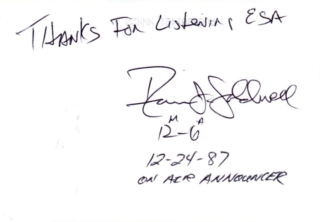 THANKS FOR LISTENING, ESA
M A
12-6
12-24-87
ON AIR ANNOUNCER